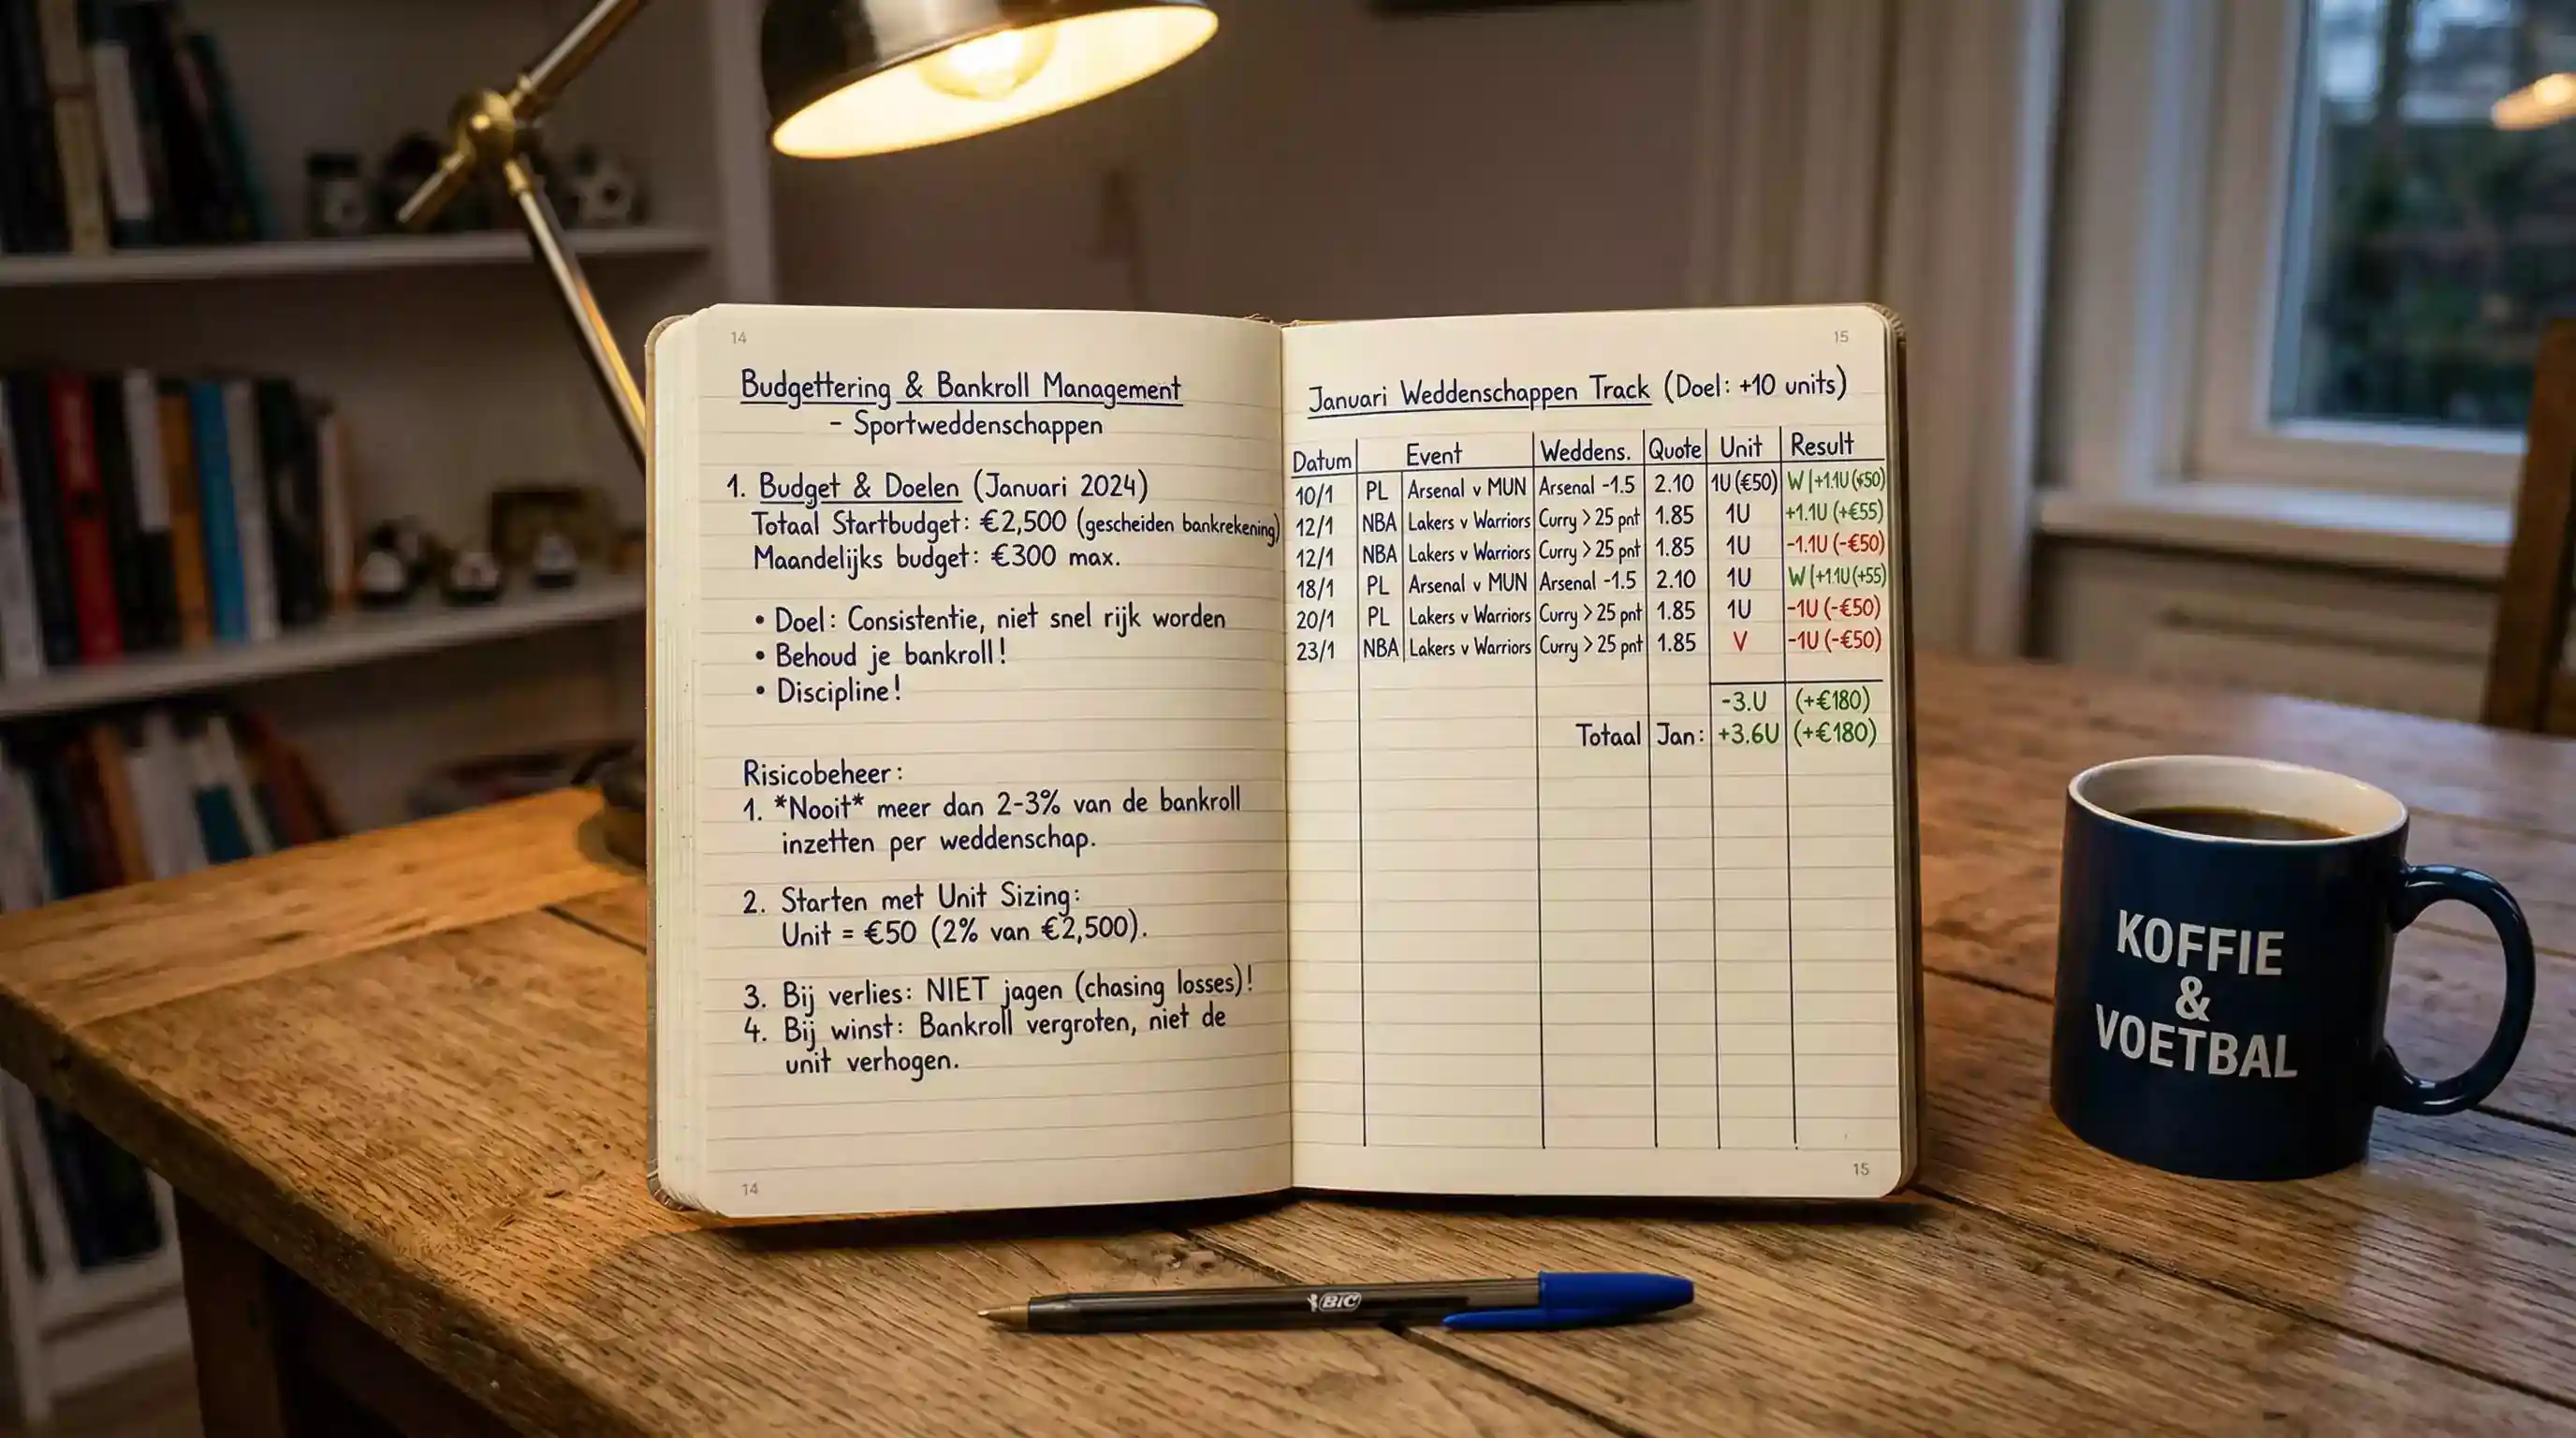 14
Budgettering & Bankroll Management
- Sportweddenschappen
1. Budget & Doelen (Januari 2024)
Totaal Startbudget: €2,500 (gescheiden bankrekening)
Maandelijks budget: €300 max.
• Doel: Consistentie, niet snel rijk worden
• Behoud je bankroll!
• Discipline!
Risicobeheer:
1. *Nooit* meer dan 2-3% van de bankroll
inzetten per weddenschap.
2. Starten met Unit Sizing:
Unit = €50 (2% van €2,500).
3. Bij verlies: NIET jagen (chasing losses)!
4. Bij winst: Bankroll vergroten, niet de
unit verhogen.
14
15
Januari Weddenschappen Track (Doel: +10 units)
Datum Event Weddens. Quote Unit Result
10/1 PL Arsenal v MUN Arsenal -1.5 2.10 1U (€50) W|+1.1U(+€50)
12/1 NBA Lakers v Warriors Curry > 25 pnt 1.85 1U +1.1U (+€55)
12/1 NBA Lakers v Warriors Curry > 25 pnt 1.85 1U -1.1U (-€50)
18/1 PL Arsenal v MUN Arsenal -1.5 2.10 1U W|+1.1U(+55)
20/1 PL Lakers v Warriors Curry > 25 pnt 1.85 1U -1U (-€50)
23/1 NBA Lakers v Warriors Curry > 25 pnt 1.85 V -1U (-€50)
-3.U (+€180)
Totaal Jan: +3.6U (+€180)
15
KOFFIE
&
VOETBAL
BIC